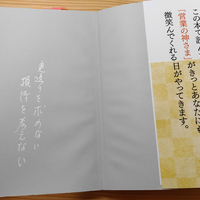 この本で読ん
「営業の神さま」
がきっとあなたにも
微笑んでくれる
日がやってきます。
見返りを求めない
損得を考えない